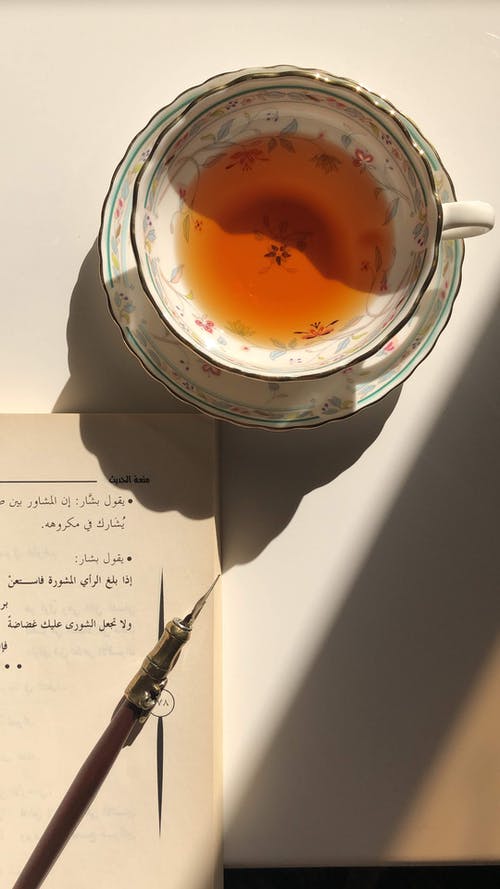 متعة الحديث
• يقول بشَّار: إن المشاور بين
يُشارك في مكروهه.
• يقول بشار:
إذا بلغ الرأي المشورة فاستـــعنْ
ولا تجعل الشورى عليك غضاضةً
• •
٧٨